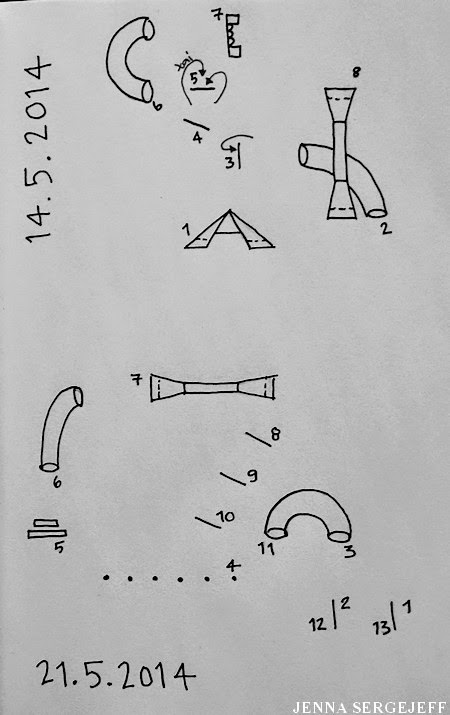 14.5.2014
7
6
5
4
3
8
1
2
7
6
8
9
10
5
11
3
4
12
2
13
1
21.5.2014
JENNA SERGEJEFF